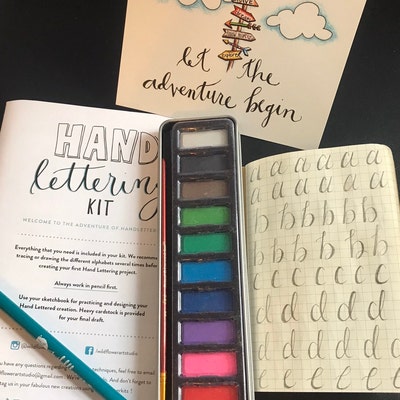 let the
adventure begin
HAND
lettering
KIT
WELCOME TO THE ADVENTURE OF HANDLETTER
Everything that you need is included in your kit. We recomme
tracing or drawing the different alphabets several times befor
creating your first Hand Lettering project.
Always work in pencil first.
Use your sketchbook for practicing and designing your
Hand Lettered creation. Heavy cardstock is provided
for your final draft.
/wildflowerartstudio
you have any questions regarding techniques, feel free to email
dflowerartstudio@gmail.com
tag us in your fabulous new creations using
a a a a a a
a a a a a a
b b b b b b
b b b b b b
c c c c c c c
d d d d d d
d d d d d d
e e e e e e